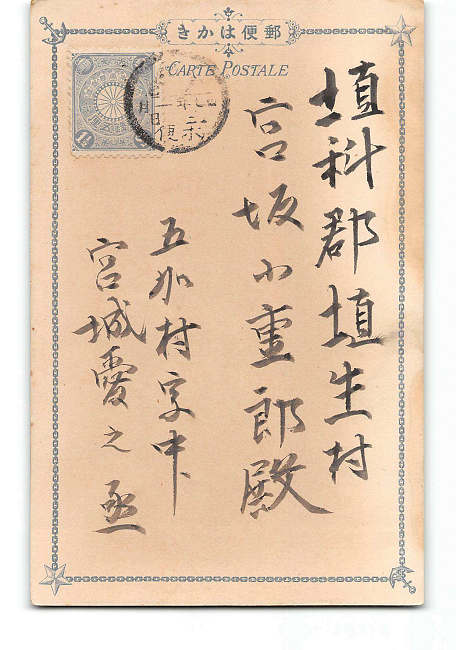 郵便はかき
CARTE POSTALE
埴科郡埴生村
宮坂小重郎殿
五加村字中
宮城愛之丞